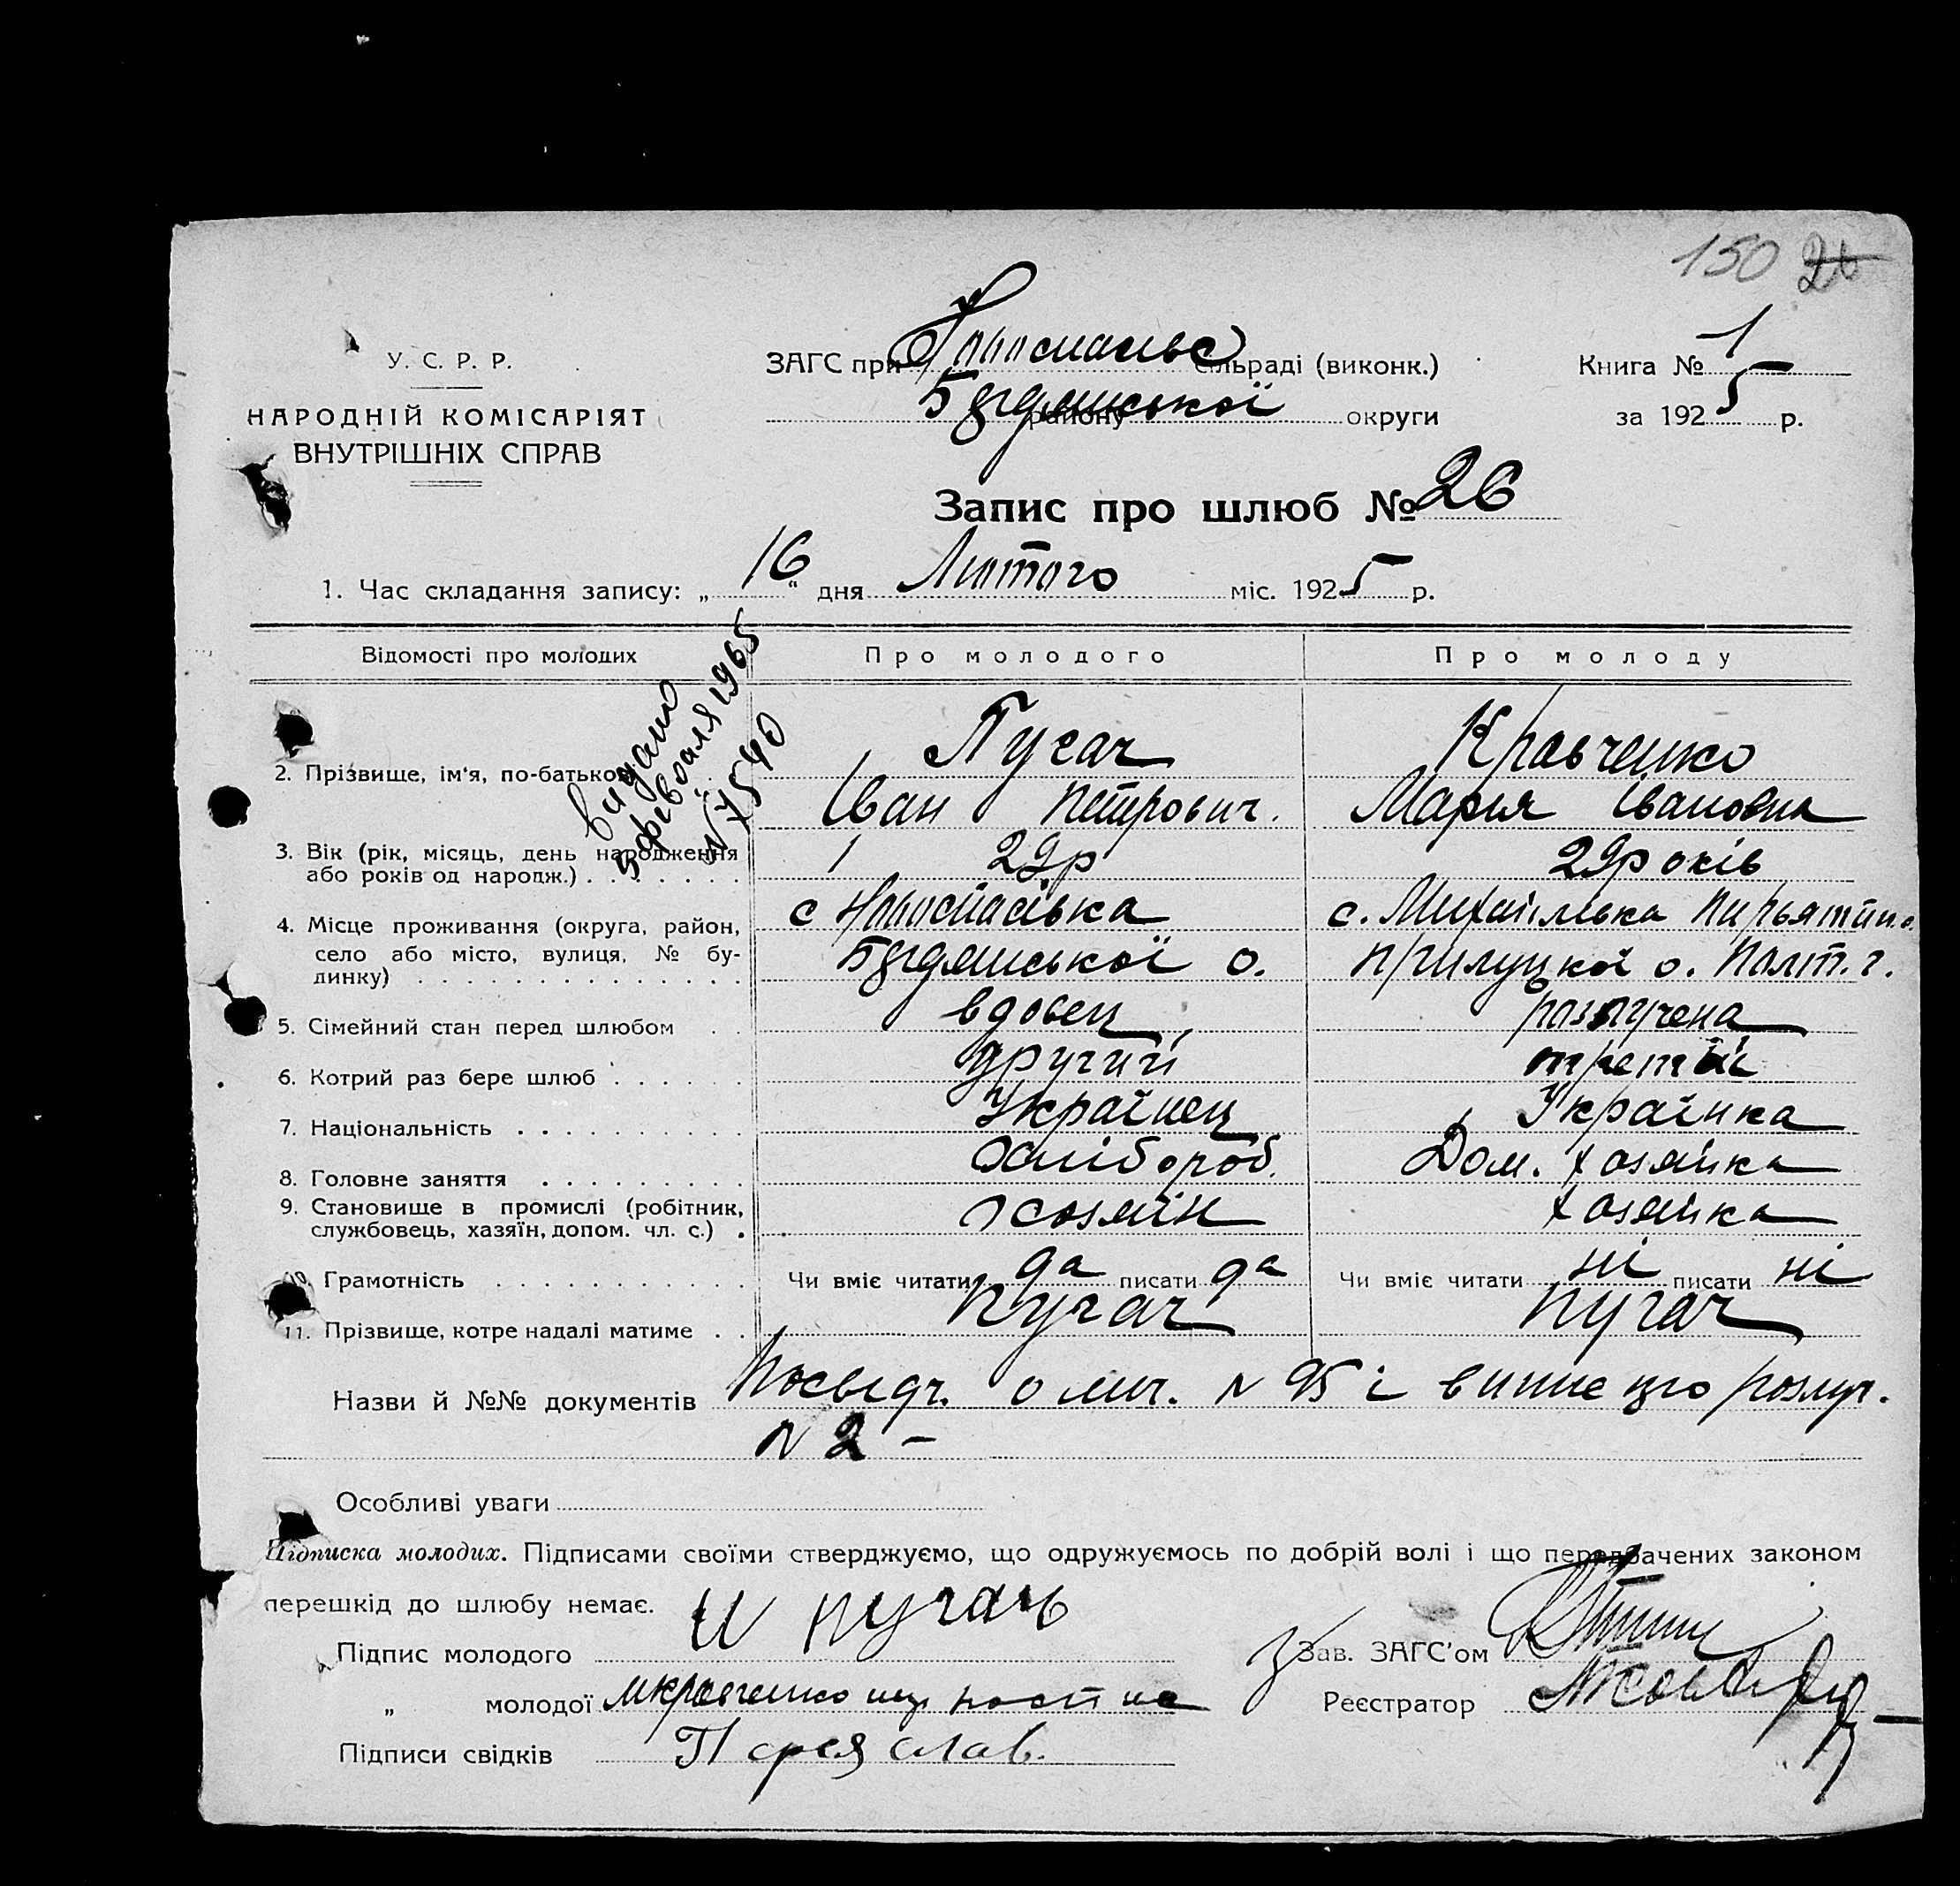 150 26
У. С. Р. Р.
НАРОДНІЙ КОМІСАРІЯТ
ВНУТРІШНІХ СПРАВ
ЗАГС при Новоспасьс сільраді (виконк.)
Бердянської району округи
Книга № 1
за 1925 р.
Запис про шлюб № 26
1. Час складання запису: „16“ дня Лютого міс. 1925 р.
Відомості про молодих
Про молодого
Про молоду
видано
5 февраля 1965
N 7540
2. Прізвище, ім'я, по-батькові
Пугач
Іван Петрович.
Кравченко
Мария Івановна
3. Вік (рік, місяць, день народження
або років од народж.)
29р
29 років
4. Місце проживання (округа, район,
село або місто, вулиця, № бу-
динку)
с Новоспасівка
Бердянської о.
с. Михайлівка Пирьятин.
Прилуцкої о. Полт. г.
5. Сімейний стан перед шлюбом
вдовец
розлучена
6. Котрий раз бере шлюб
другий
третий
7. Національність
Українец
Українка
8. Головне заняття
Хлібороб.
Дом. хозяйка
9. Становище в промислі (робітник,
службовець, хазяїн, допом. чл. с.)
хозяїн
хозяйка
10. Грамотність
Чи вміє читати да писати да
Чи вміє читати ні писати ні
11. Прізвище, котре надалі матиме
Пугач
Пугач
Назви й №№ документів Посвідч. о лич. N 95 і випис про розлуч.
N 2 –
Особливі уваги
Підписка молодих. Підписами своїми стверджуємо, що одружуємось по добрій волі і що передбачених законом
перешкід до шлюбу немає.
Підпис молодого И пугачь
„ молодої М Кравченко
Підписи свідків Переяслав.
Зав. ЗАГС'ом
Реєстратор